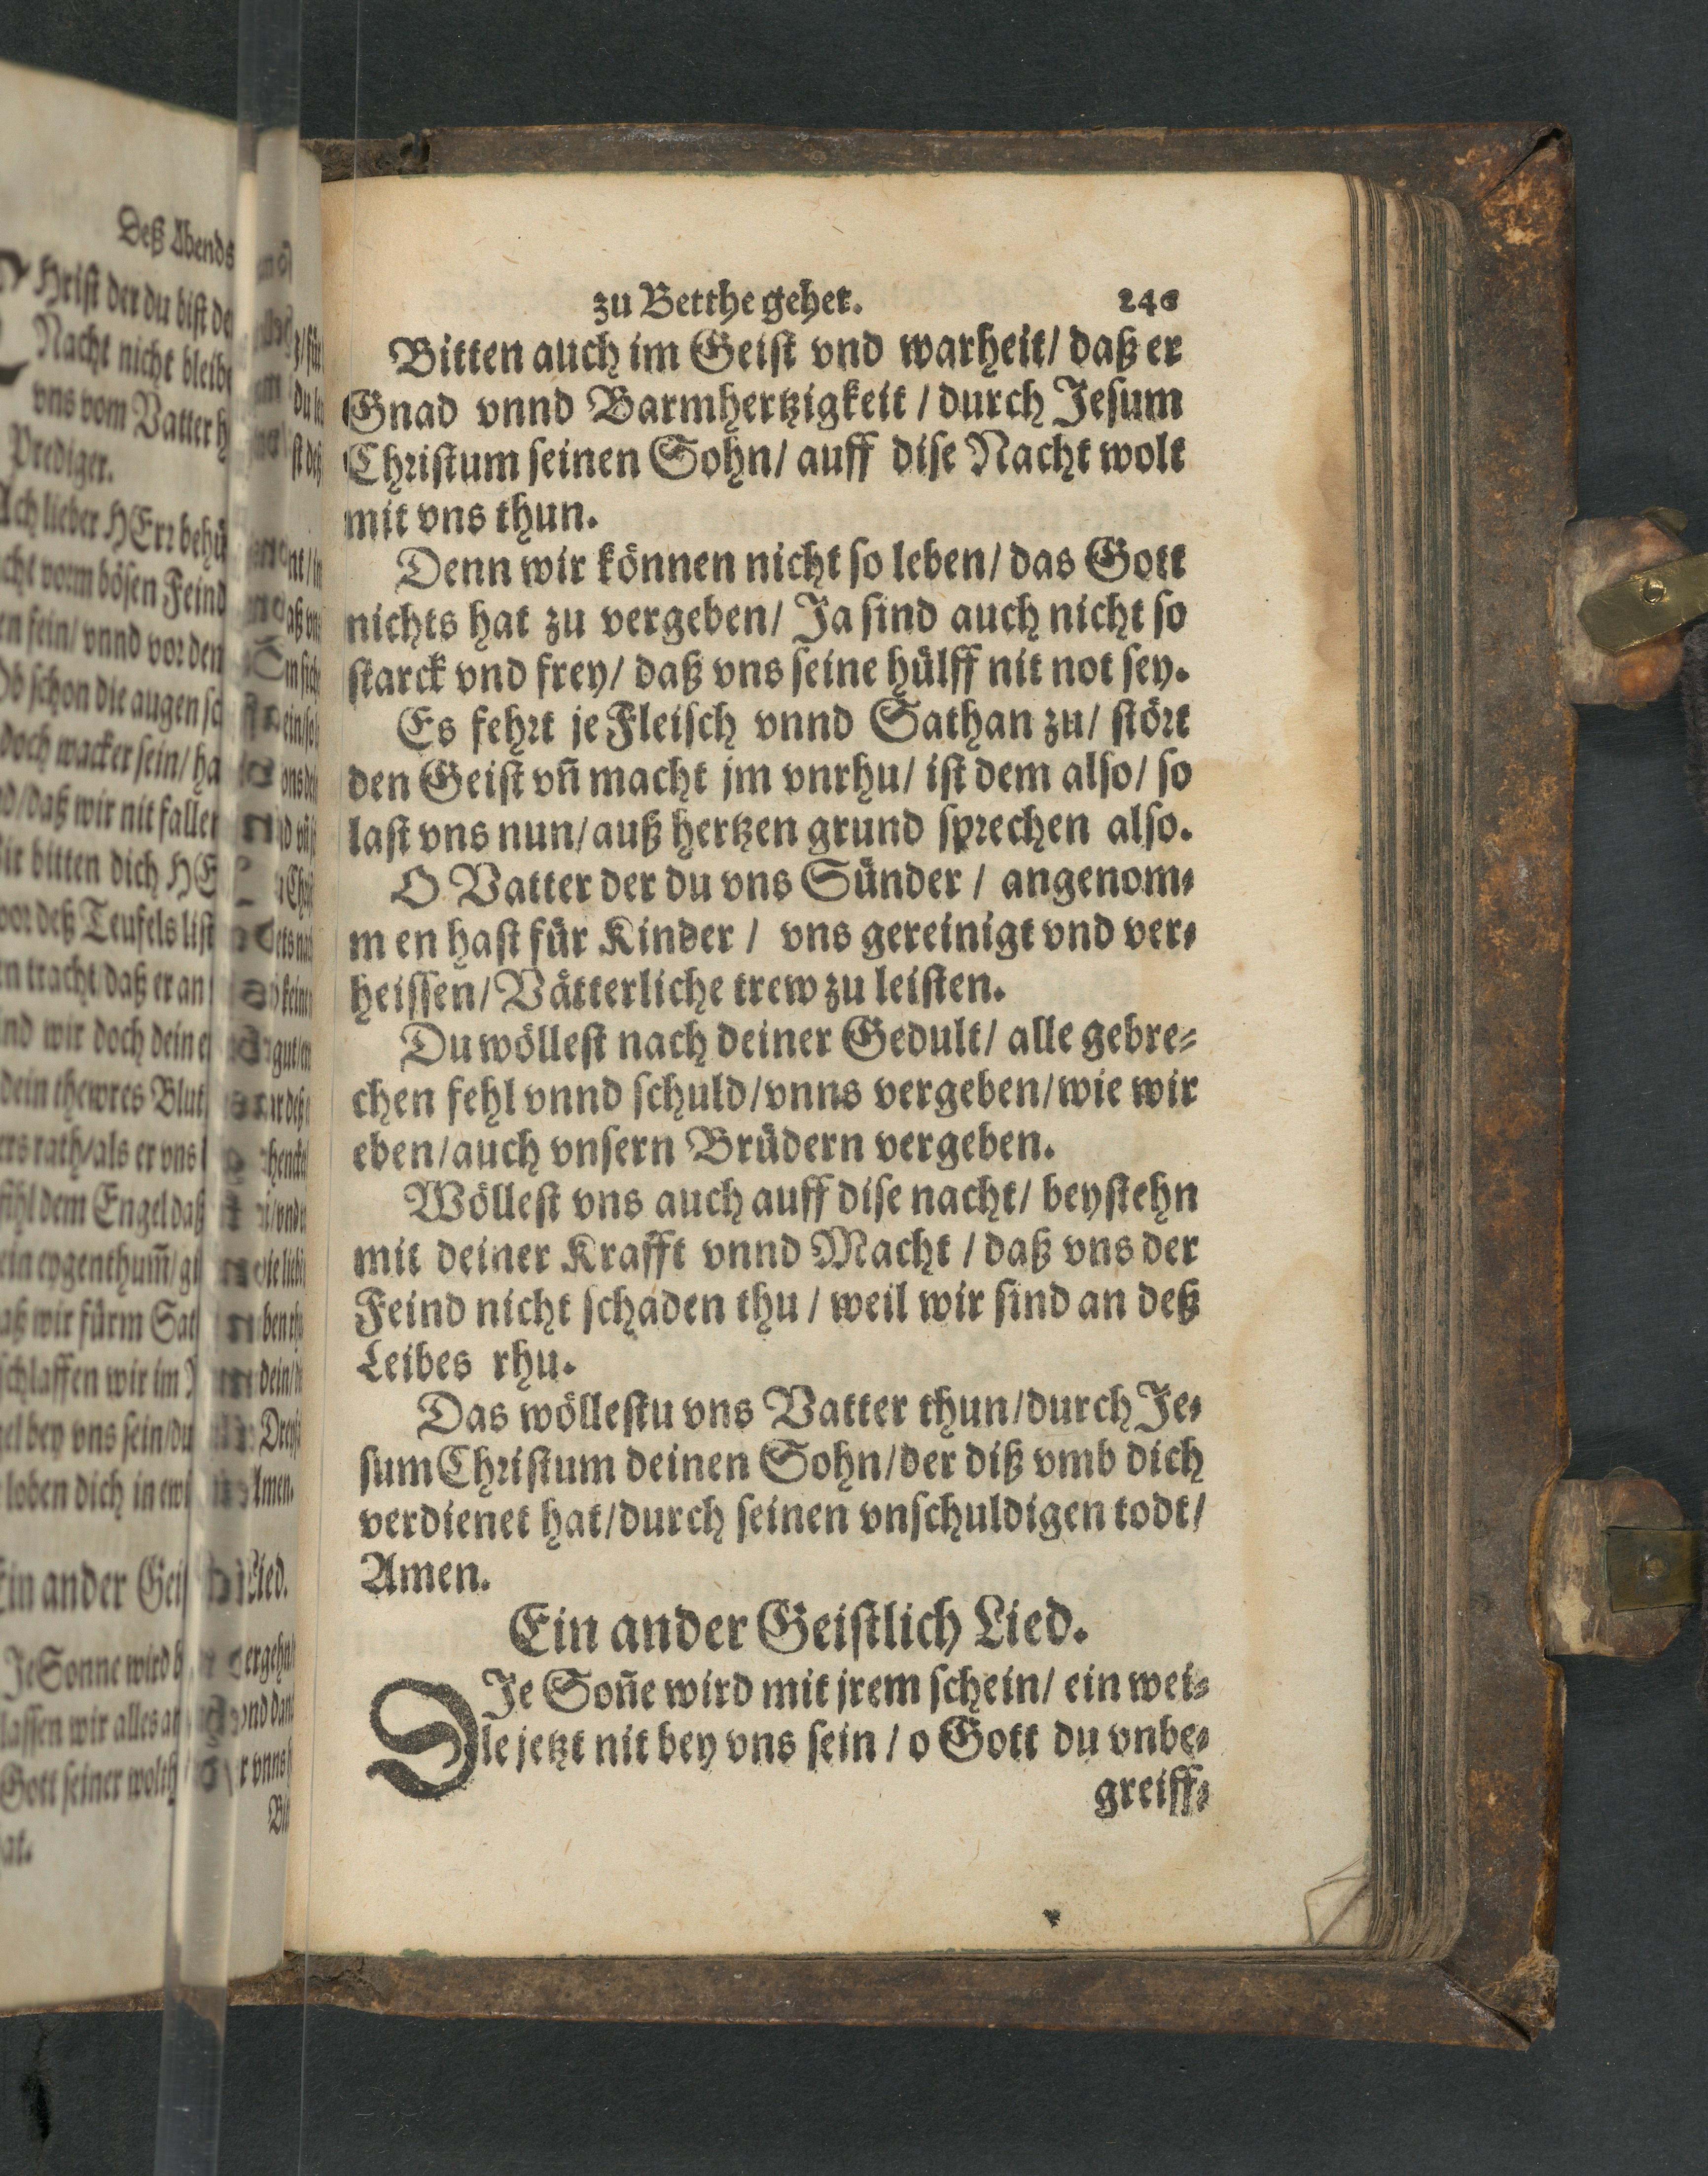 Deß Abends
Hrist der du bist
Nacht nicht bleibt
vns vom Vatter
Prediger.
Ach lieber HErr behü
vorm bösen Feind
sein/ vnnd vor den
Ob schon die augen
doch wacker sein/
daß wir nit
bitten dich
vor deß Teufels list
tracht/ daß er an
wir doch dein
dein thewres Blut
rath/ als er vns
dem Engel daß
eygenthum̃/
wir fürm
schlaffen wir im
bey vns sein/ du
loben dich in
Amen.
Ein ander
Lied.
Je Sonne wird
lassen wir alles
Gott seiner
zu Betthe gehet.
246
Bitten auch im Geist vnd warheit/ daß er
Gnad vnnd Barmhertzigkeit / durch Jesum
Christum seinen Sohn/ auff dise Nacht wolt
mit vns thun.
Denn wir können nicht so leben/ das Gott
nichts hat zu vergeben/ Ja sind auch nicht so
starck vnd frey/ daß vns seine hülff nit not sey.
Es fehrt je Fleisch vnnd Sathan zu/ stört
den Geist vñ macht jm vnrhu/ ist dem also/ so
last vns nun/ auß hertzen grund sprechen also.
O Vatter der du vns Sünder / angenom-
m en hast für Kinder / vns gereinigt vnd ver-
heissen/ Vätterliche trew zu leisten.
Du wöllest nach deiner Gedult/ alle gebre-
chen fehl vnnd schuld/ vnns vergeben/ wie wir
eben/ auch vnsern Brüdern vergeben.
Wöllest vns auch auff dise nacht/ beystehn
mit deiner Krafft vnnd Macht / daß vns der
Feind nicht schaden thu / weil wir sind an deß
Leibes rhu.
Das wöllestu vns Vatter thun/ durch Je-
sum Christum deinen Sohn/ der diß vmb dich
verdienet hat/ durch seinen vnschuldigen todt/
Amen.
Ein ander Geistlich Lied.
DJe Soñe wird mit jrem schein/ ein wei-
le jetzt nit bey vns sein / o Gott du vnbe-
greiff-